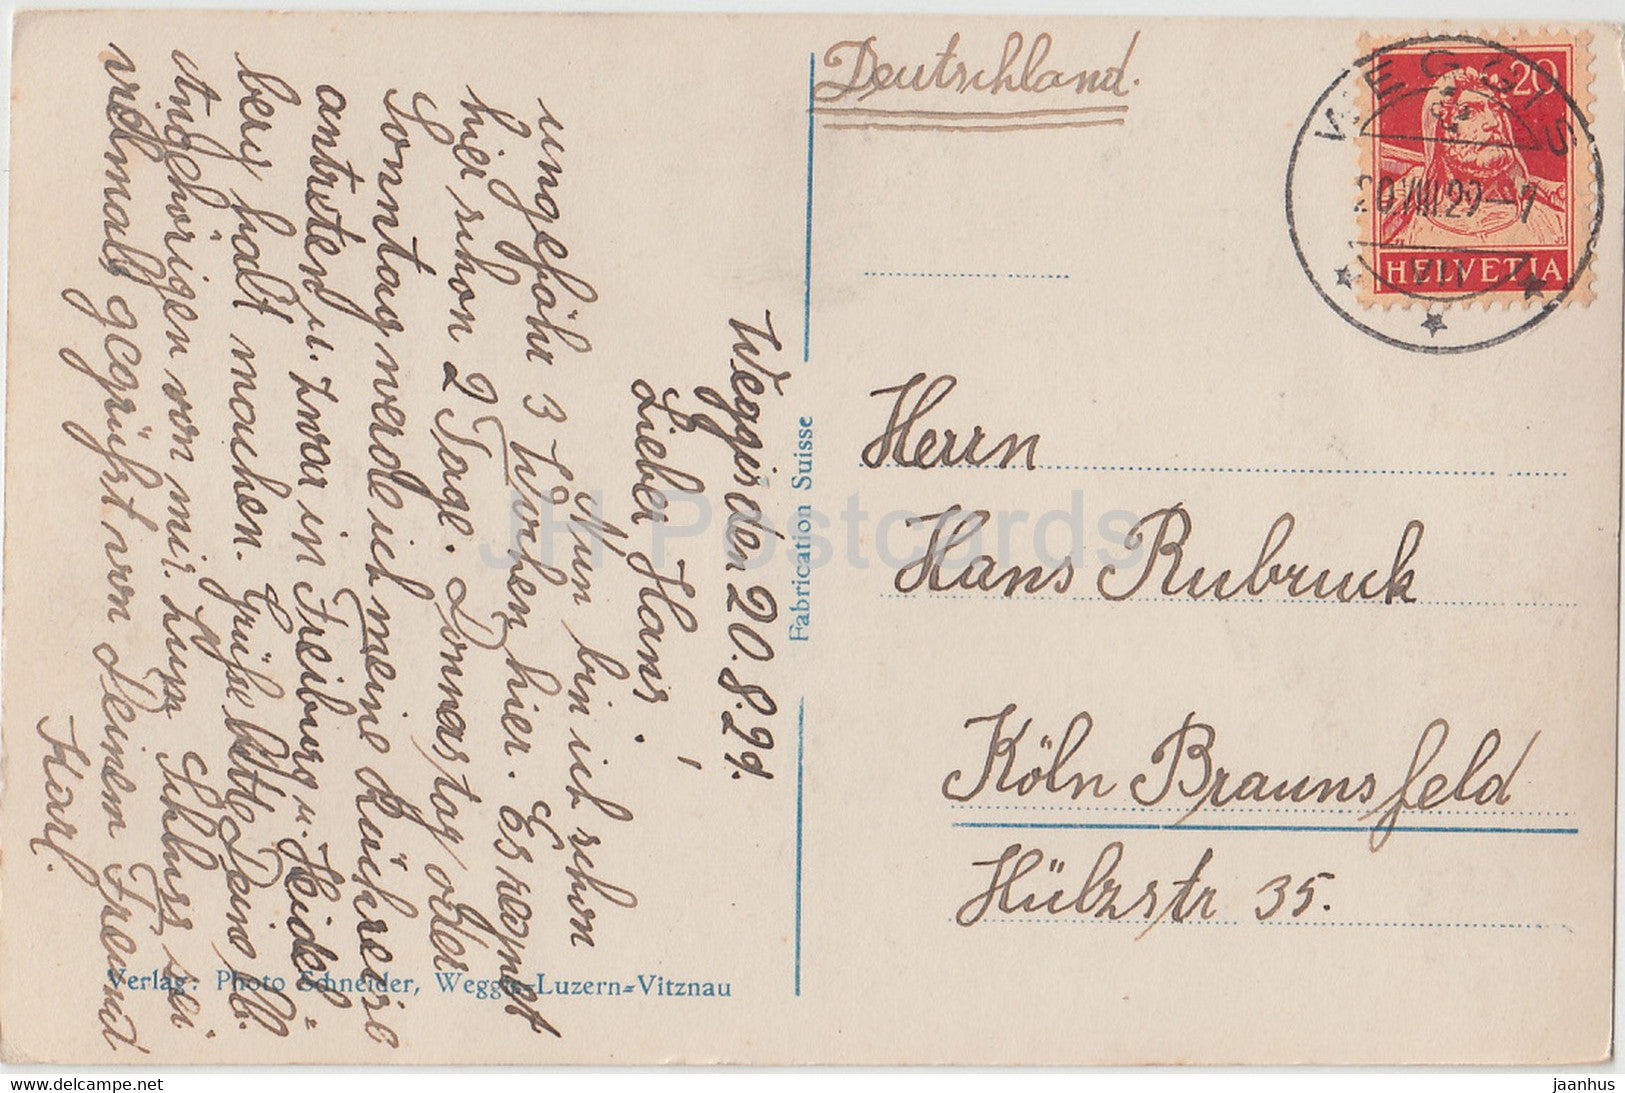 Deutschland.
WEGGIS
20.VIII.29–7
VII
20
HELVETIA
Herrn
Hans Rubruck
Köln Braunsfeld
Hülzstr 35.
Weggis den 20.8.29.
Lieber Hans!
Nun bin ich schon
ungefähr 3 Wochen hier. Es regnet
hier schon 2 Tage. Donnerstag oder
Sonntag werde ich meine Rückreise
antreten u. zwar in Freiburg u. Heidel=
berg halt machen. Grüße bitte Deine lb.
Angehörigen von mir. Zum Schluss sei
vielmals gegrüßt von Deinem Freund
Karl.
Fabrication Suisse
Verlag: Photo Schneider, Weggis-Luzern-Vitznau
JH Postcards
jaanhus
www.delcampe.net